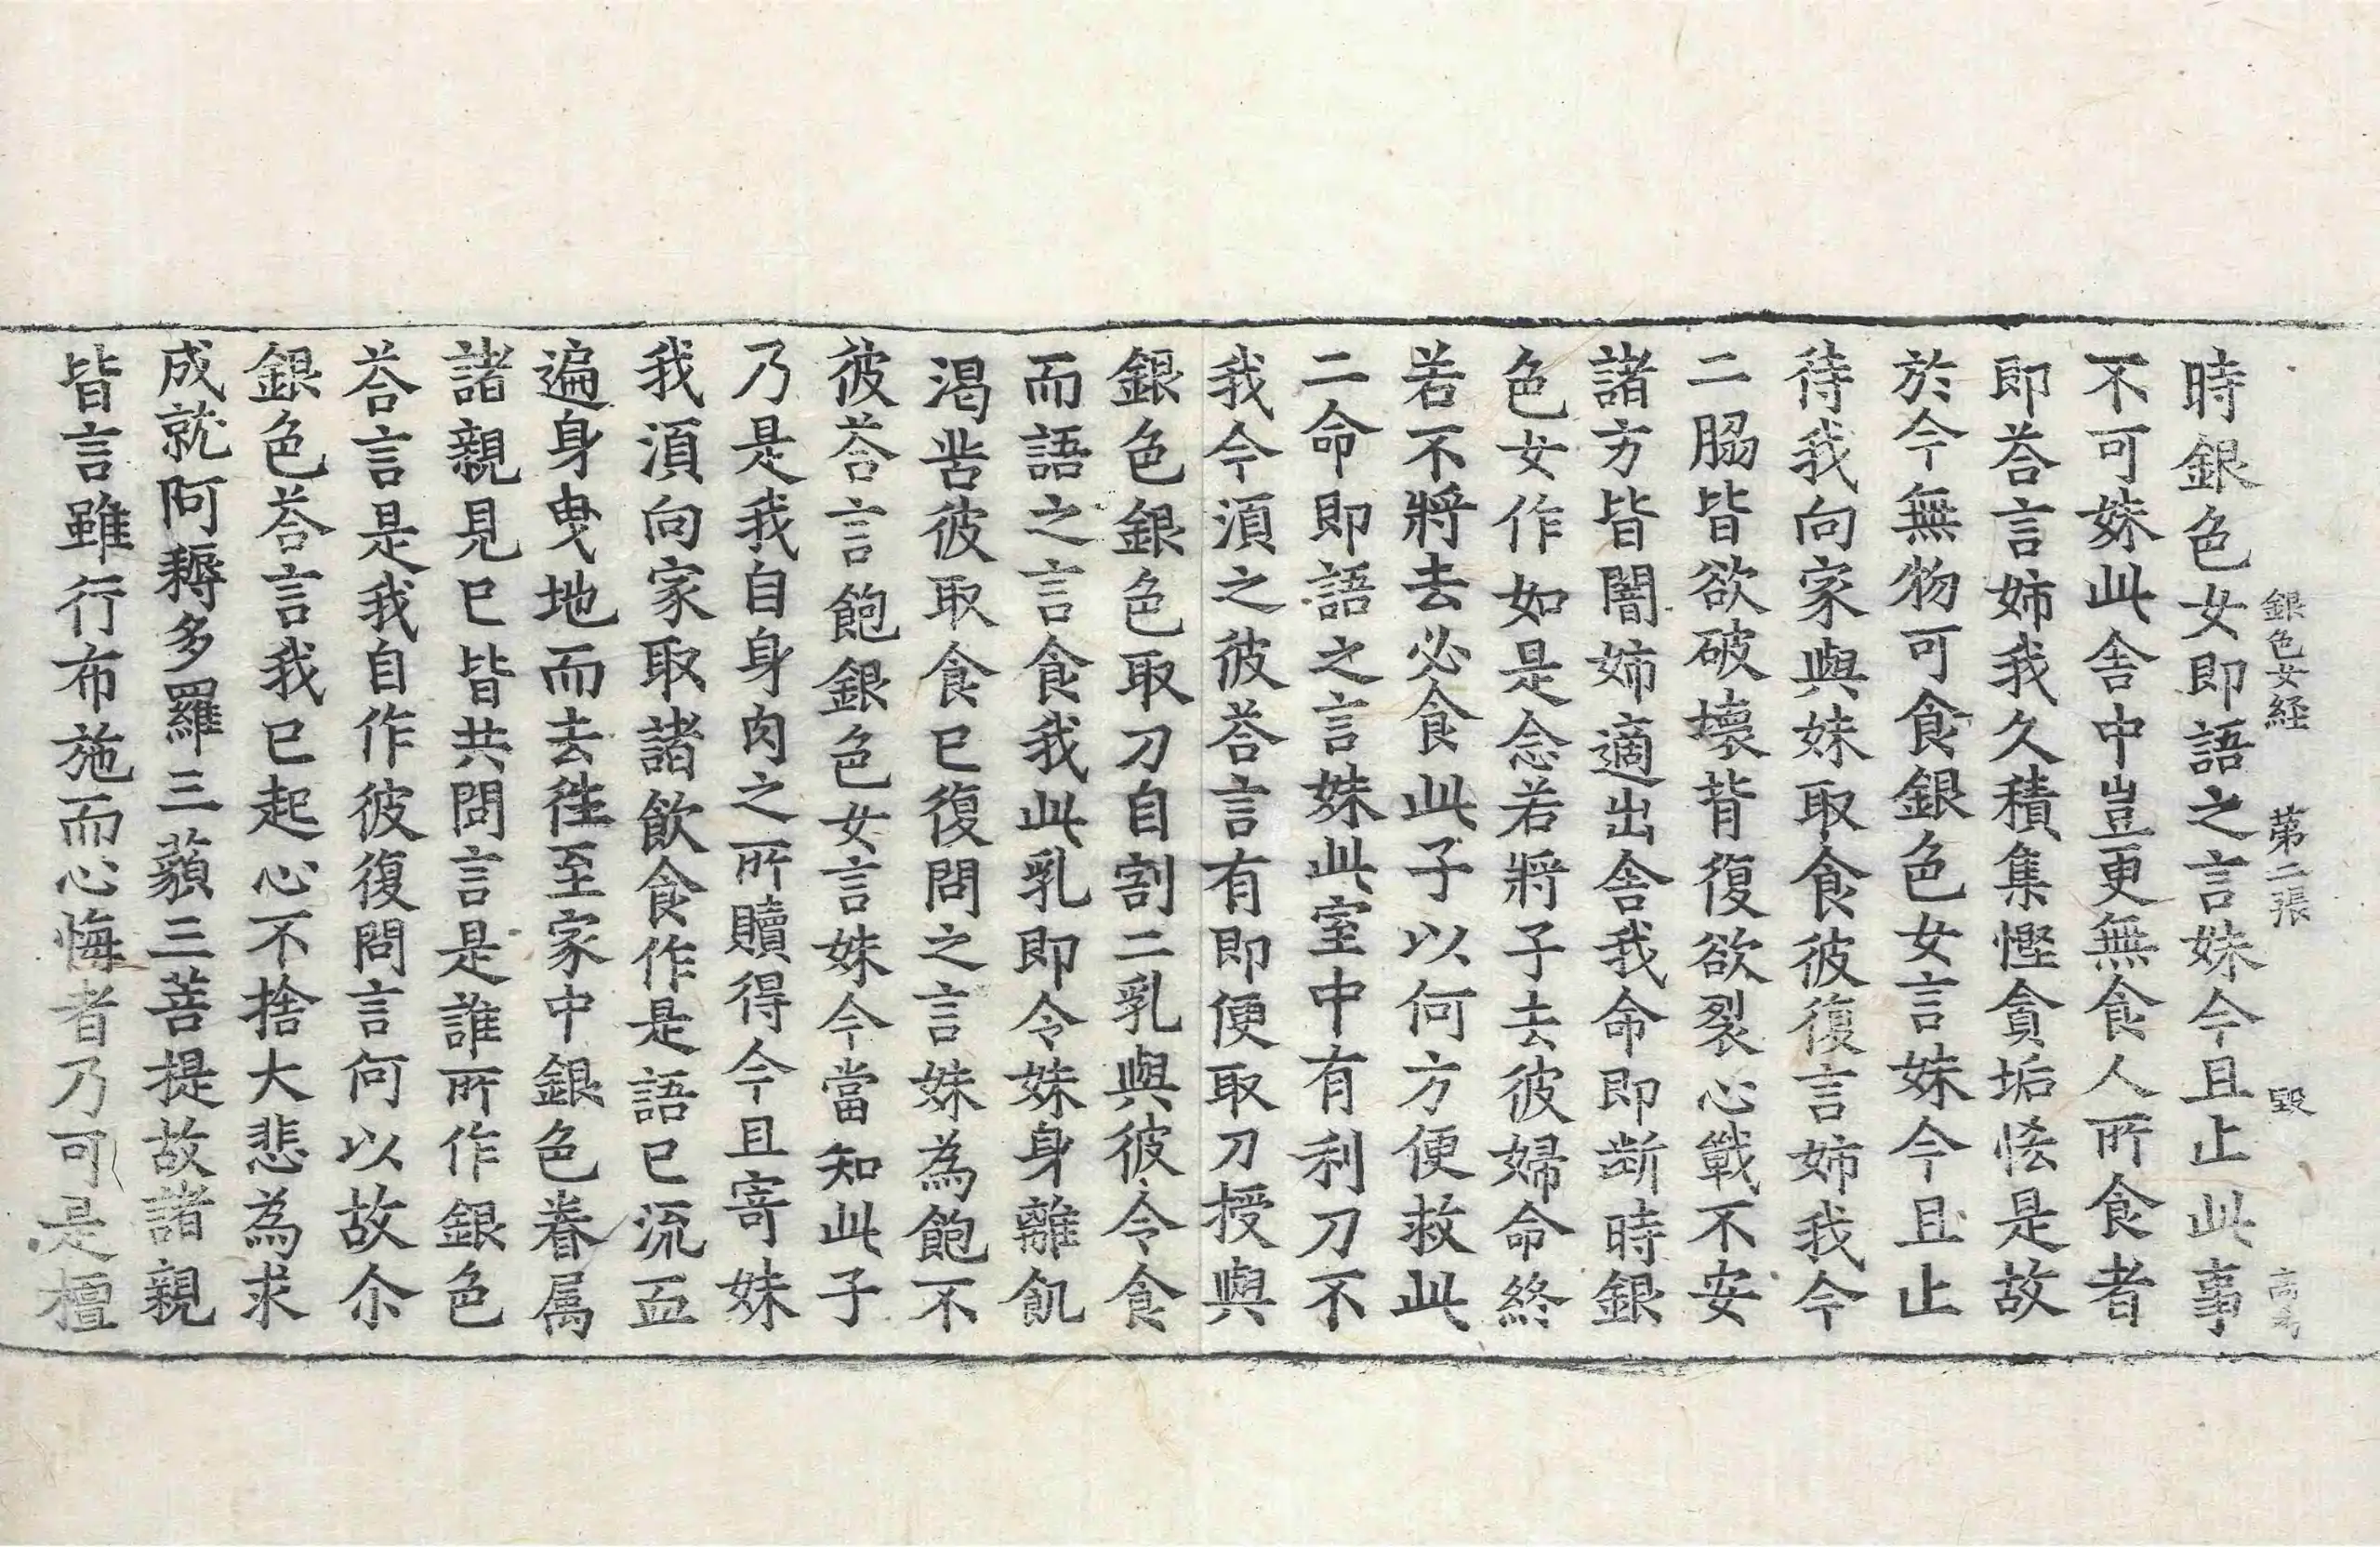 銀色女経 第二張 毀
時銀色女即語之言妹今且止此事
不可妹此舎中豈更無食人所食者
即荅言姉我久積集慳貪垢悋是故
於今無物可食銀色女言妹今且止
待我向家與妹取食彼復言姉我今
二脇皆欲破壊背復欲裂心戰不安
諸方皆闇姉適出舎我命即断時銀
色女作如是念若將子去彼婦命終
若不將去必食此子以何方便救此
二命即語之言妹此室中有利刀不
我今湏之彼荅言有即便取刀授與
銀色銀色取刀自割二乳與彼令食
而語之言食我此乳即令妹身離飢
渇苦彼取食已復問之言妹為飽不
彼荅言飽銀色女言妹今當知此子
乃是我自身肉之所贖得今且寄妹
我湏向家取諸飲食作是語已流血
遍身曳地而去徃至家中銀色眷属
諸親見已皆共問言是誰所作銀色
荅言是我自作彼復問言何以故尒
銀色荅言我已起心不捨大悲為求
成就阿耨多羅三藐三菩提故諸親
皆言雖行布施而心悔者乃可是檀